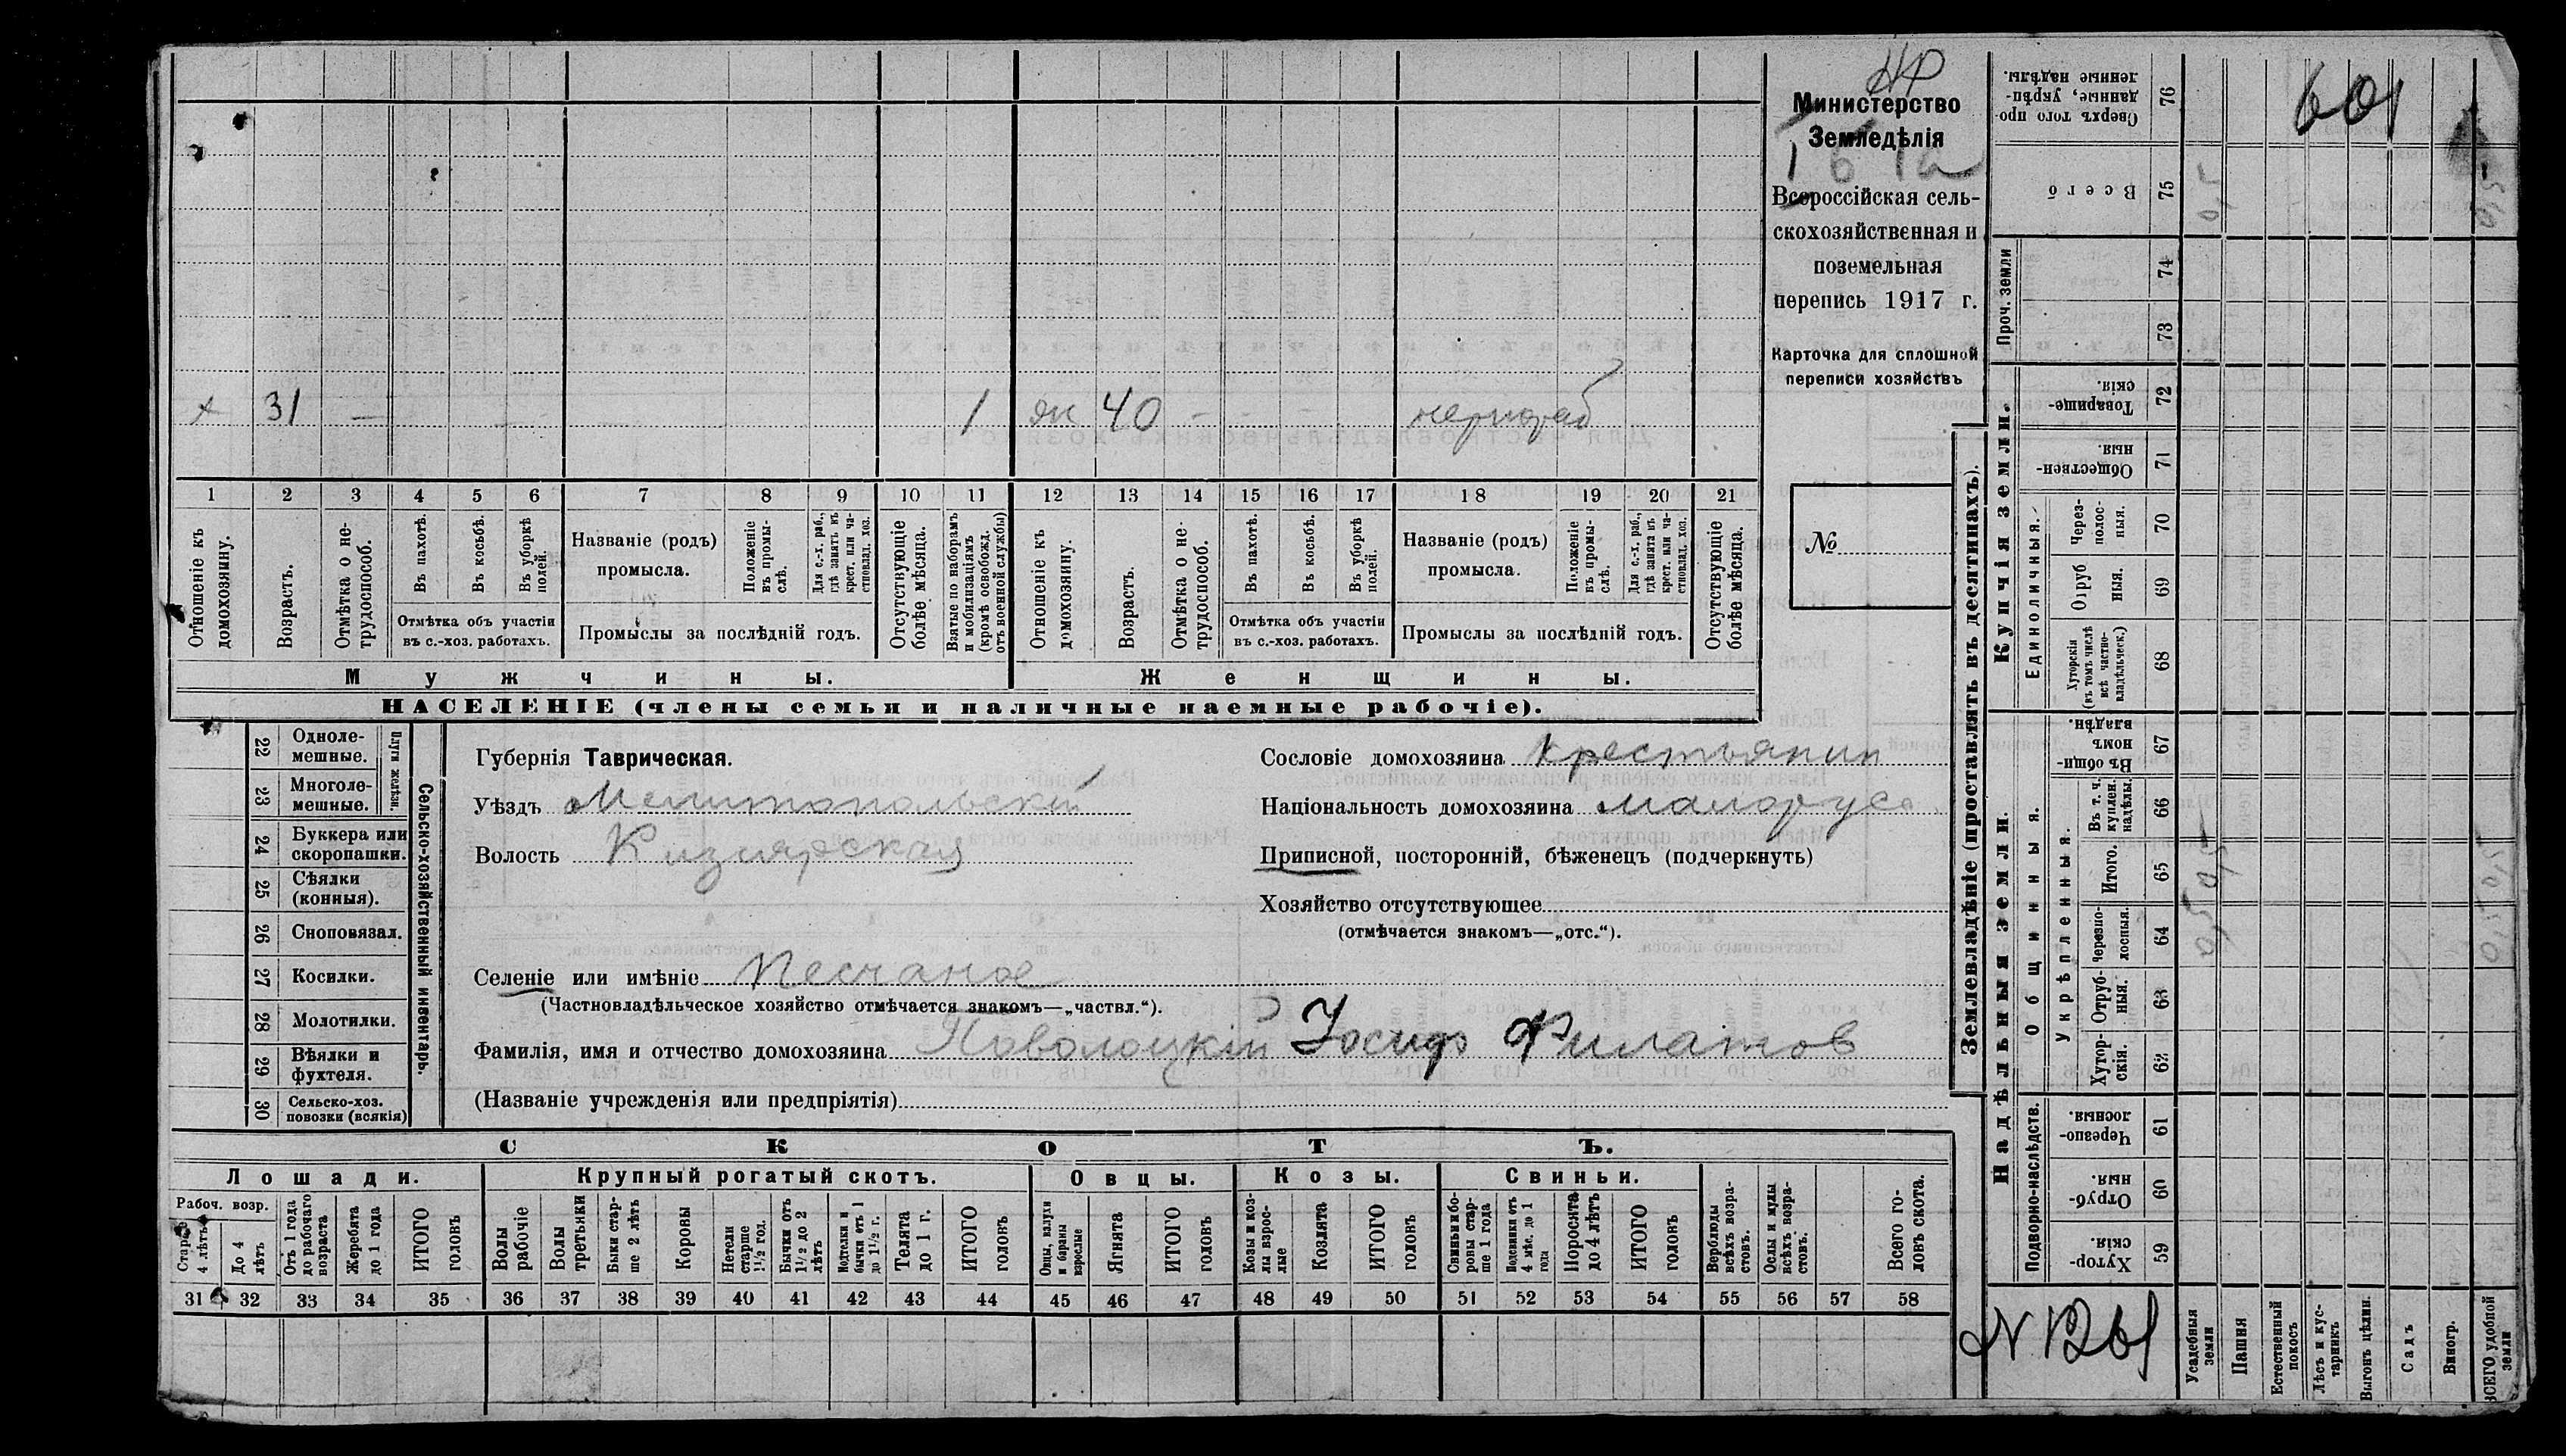 НР
Министерство
Земледѣлія
Всероссійская сель-
скохозяйственная и
поземельная
перепись 1917 г.
Карточка для сплошной
переписи хозяйствъ
№
х 31 — 1 40 —
1 2 3 4 5 6 7 8 9 10 11 12 13 14 15 16 17 18 19 20 21
Отношеніе къ домохозяину.
Возрастъ.
Отмѣтка о не-трудоспособ.
Въ пахотѣ.
Въ косьбѣ.
Въ уборкѣ полей.
Отмѣтка объ участіи
въ с.-хоз. работахъ.
Названіе (родъ)
промысла.
Положеніе въ промы-слѣ.
Для с.-х. раб., гдѣ занятъ въ крест. или ча-стновлад. хоз.
Промыслы за послѣдній годъ.
Отсутствующіе болѣе мѣсяца.
Взятые по наборамъ и мобилизаціямъ (кромѣ освобожд. отъ военной службы)
Отношеніе къ домохозяину.
Возрастъ.
Отмѣтка о не-трудоспособ.
Въ пахотѣ.
Въ косьбѣ.
Въ уборкѣ полей.
Отмѣтка объ участіи
въ с.-хоз. работахъ.
Названіе (родъ)
промысла.
Положеніе въ промы-слѣ.
Для с.-х. раб., гдѣ занята въ крест. или ча-стновлад. хоз.
Промыслы за послѣдній годъ.
Отсутствующіе болѣе мѣсяца.
Мужчины.
Женщины.
НАСЕЛЕНІЕ (члены семьи и наличные наемные рабочіе).
22 Одноле-мешные.
23 Многоле-мешные.
Плуги желѣзн.
24 Буккера или скоропашки.
25 Сѣялки (конныя).
26 Сноповязал.
27 Косилки.
28 Молотилки.
29 Вѣялки и фухтеля.
30 Сельско-хоз. повозки (всякія)
Сельско-хозяйственный инвентарь.
Губернія Таврическая.
Уѣздъ Мелитопольскій
Волость Кизиярская
Селеніе или имѣніе Песчаное
(Частновладѣльческое хозяйство отмѣчается знакомъ—„частвл.“).
Фамилія, имя и отчество домохозяина Поволоцкій Иосиф Филатов
(Названіе учрежденія или предпріятія)
Сословіе домохозяина крестьянин
Національность домохозяина малорус
Приписной, посторонній, бѣженец (подчеркнуть)
Хозяйство отсутствующее
(отмѣчается знакомъ—„отс.“).
СКОТЪ.
Лошади.
Рабоч. возр.
Старше 4 лѣтъ
До 4 лѣтъ
Отъ 1 года до рабочаго возраста
Жеребята до 1 года
ИТОГО головъ
Крупный рогатый скотъ.
Волы рабочіе
Волы третьяки
Быки стар-ше 2 лѣтъ
Коровы
Нетели старше 1½ год.
Бычки отъ 1½ до 2 лѣтъ
Подтелки и бычки отъ 1 до 1½ г.
Телята до 1 г.
ИТОГО головъ
Овцы.
Овцы, валухи и бараны взрослые
Ягнята
ИТОГО головъ
Козы.
Козы и коз-лы взрос-лые
Козлята
ИТОГО головъ
Свиньи.
Свиньи и бо-ровы стар-ше 1 года
Подсвинки отъ 4 мѣс. до 1 года
Поросята до 4 лѣтъ
ИТОГО головъ
Верблюды всѣхъ возра-стовъ.
Ослы и мулы всѣхъ возра-стовъ.
Всего го-ловъ скота.
31 32 33 34 35 36 37 38 39 40 41 42 43 44 45 46 47 48 49 50 51 52 53 54 55 56 57 58
Землевладѣніе (проставлять въ десятинахъ).
Купчія земли.
Надѣльныя земли.
76 Сверхъ того про-данные, укрѣп-ленные надѣлы.
75 Всего
Проч. земли
74
73
72 Товарище-скія.
71 Обществен-ныя.
Единоличныя.
70 Через-полос-ныя.
69 Отруб ныя.
68 Хуторскія (въ томъ числѣ всѣ частно-владѣльческ.)
Общинныя.
67 Въ общи-номъ владѣн.
Укрѣпленныя.
66 Въ т. ч. куплен. надѣлы.
65 Итого.
64 Черезпо-лосныя.
63 Отруб-ныя.
62 Хутор-скія.
Подворно-наслѣдств.
61 Черезпо-лосныя
60 Отруб-ныя.
59 Хутор-скія.
601
N 1261
Усадебныя земли
Пашня
Естественный покосъ
Лѣсъ и кус-тарникъ
Выгонъ цѣлин.
Садъ
Виногр.
ВСЕГО удобной земли